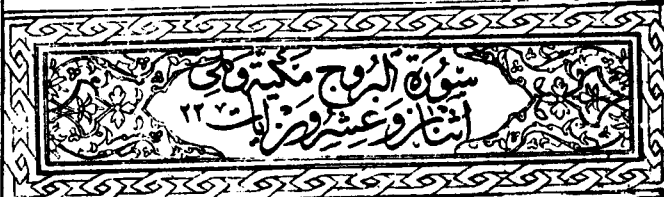 سُورَةُ الْبُرُوجِ مَكِّيَّةٌ وَهِيَ
اثْنَانِ وَعِشْرُونَ آيَات ٢٢